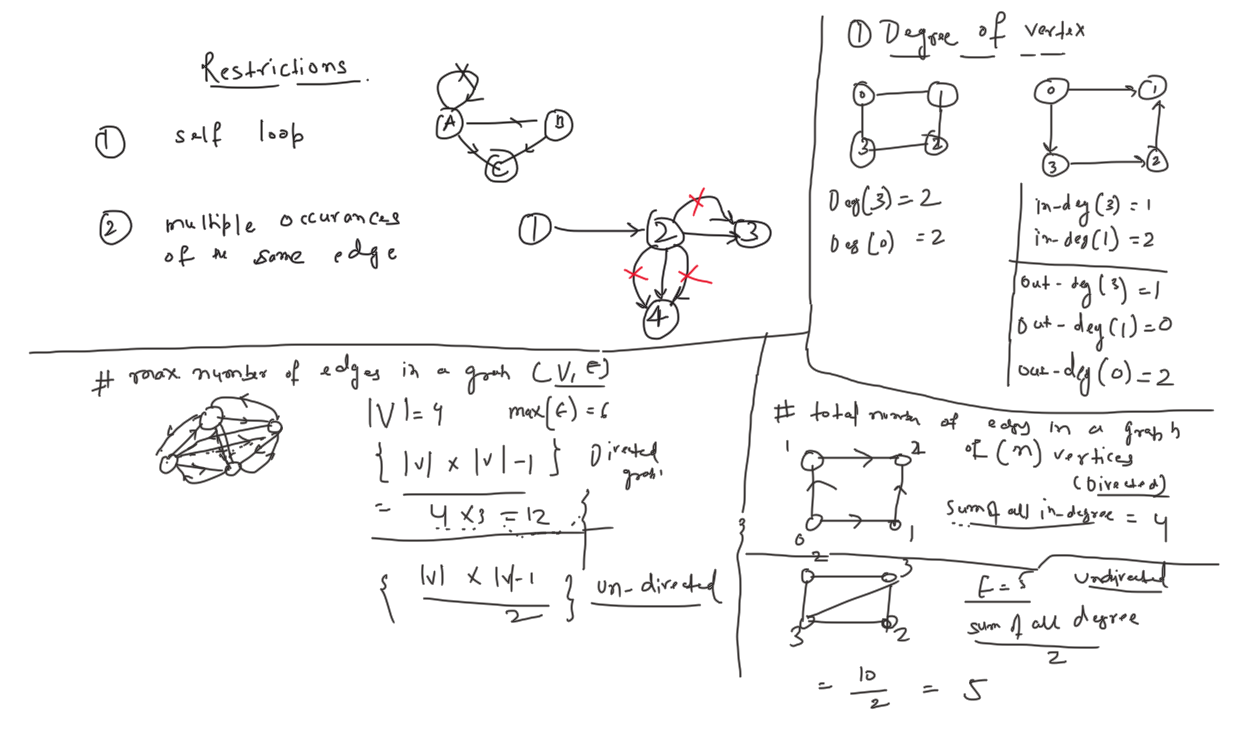 Restrictions.
① self loop
A B C
② multiple occurances
of the same edge
1 2 3 4
① Degree of vertex
0 1 3 2
0 1 3 2
Deg(3) = 2
Deg(0) = 2
in-deg(3) = 1
in-deg(1) = 2
out-deg(3) = 1
out-deg(1) = 0
out-deg(0) = 2
# max number of edges in a grah (V, E)
|V| = 4 max(E) = 6
{ |v| x |v|-1 } Directed
grah
= 4 x 3 = 12
{ |v| x |v|-1 / 2 } un-directed
# total number of edges in a graph
of (n) vertices
(Directed)
1 2
0 1
sum of all in-degree = 4
2 3
3 2
E = 5 undirected
sum of all degree
2
= 10/2 = 5